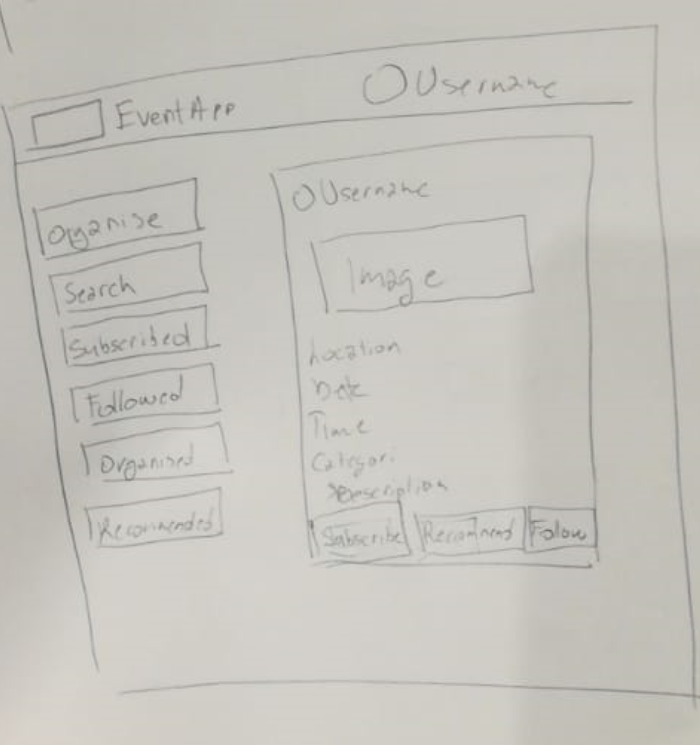 EventApp
Username
Organise
Search
Subscribed
Followed
Organised
Recommended
Username
Image
Location
Date
Time
Categori
Description
Subscribe
Recommend
Follow